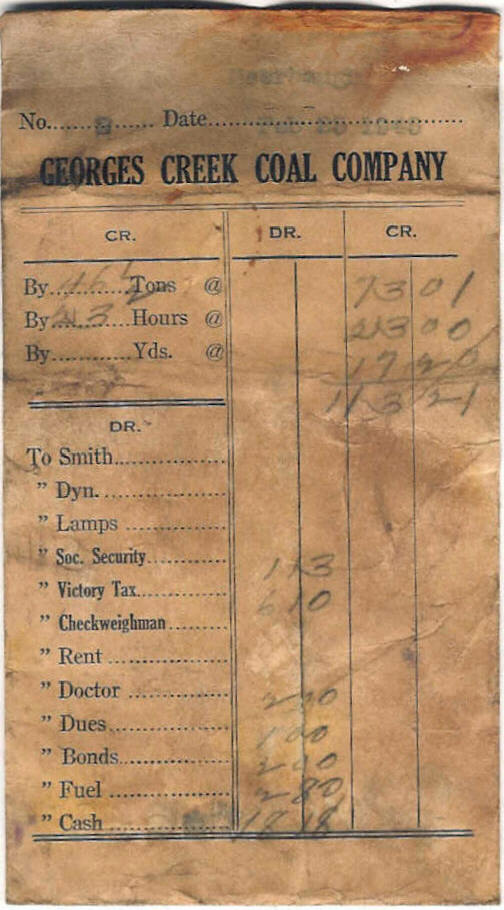 No......2...... Date..............................
GEORGES CREEK COAL COMPANY
CR. DR. CR.
By............Tons @ 73 01
By............Hours @ 23 00
By............Yds. @ 17 20
113 21
DR.
To Smith................
" Dyn...................
" Lamps ................
" Soc. Security............ 1 13
" Victory Tax............. 6 10
" Checkweighman.........
" Rent ...................
" Doctor ................ 2 00
" Dues................... 1 00
" Bonds.................. 2 00
" Fuel ................... 2 80
" Cash ..................